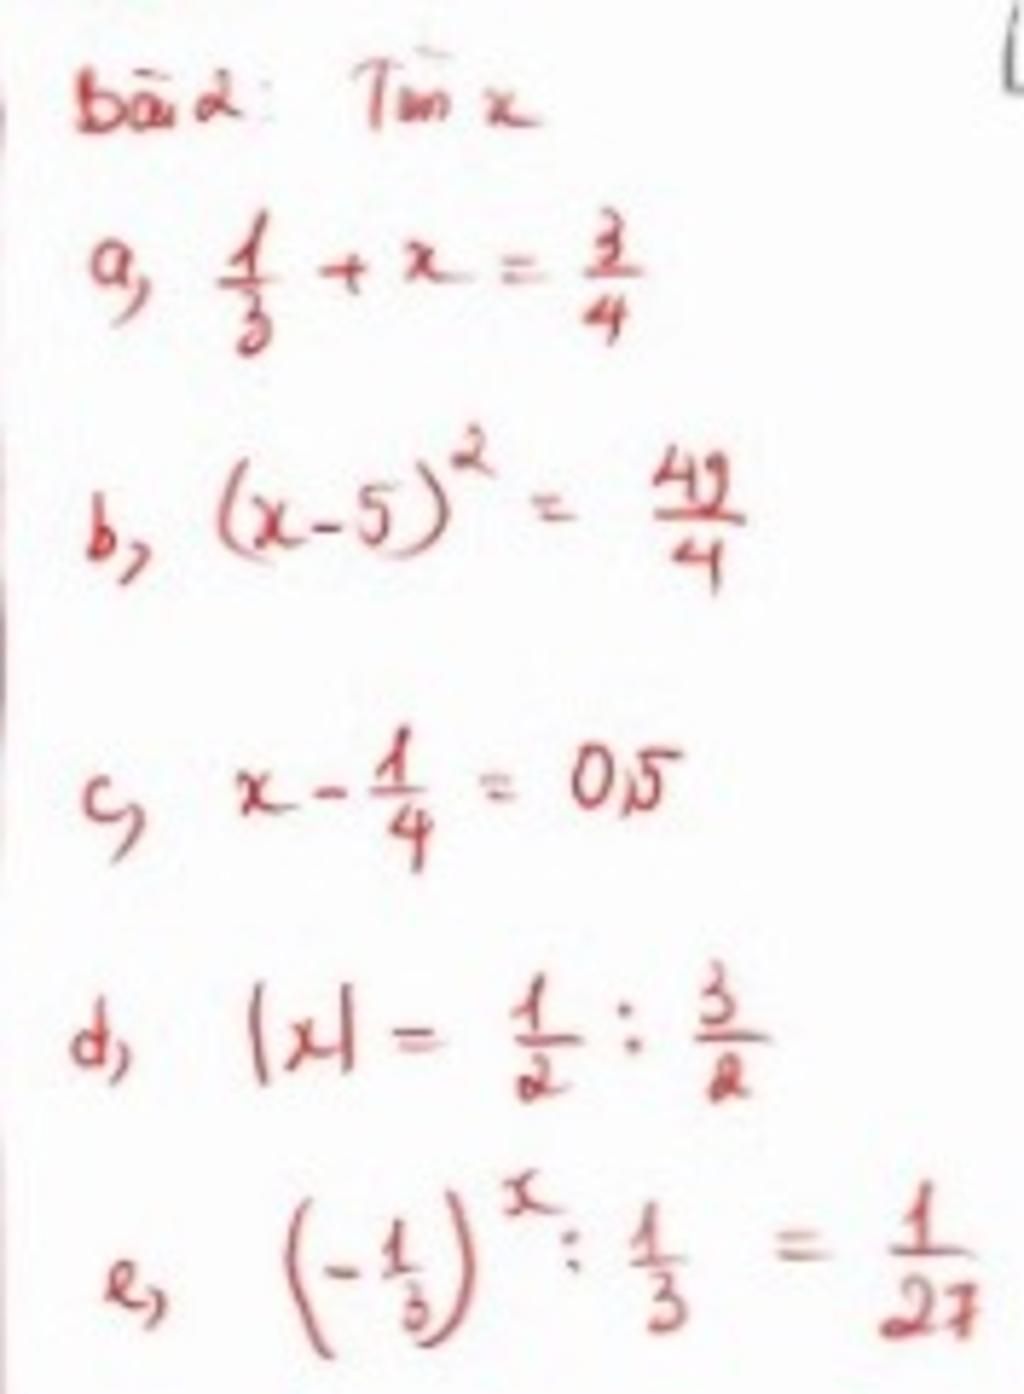 Bài 2: Tìm x
a, 1/3 + x = 3/4
b, (x - 5)^2 = 49/4
c, x - 1/4 = 0,5
d, |x| = 1/2 : 3/2
e, (-1/3)^x : 1/3 = 1/27